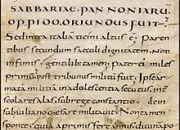 SABBARIAE PANNONIARU
OPPIDO ORIUNDUS FUIT
Sed Italia ticini altus Paren
tibus secundum saeculi dignitatem non
infimis gentilib; tamen; pater ei; miles
primu post tribunus militu fuit; Ipse ar
mata militia in adulescentia secutus
scolares alas sub rege constantio. dein
sub iuliano cesare militavit non tamen
sponte quia a primis fere